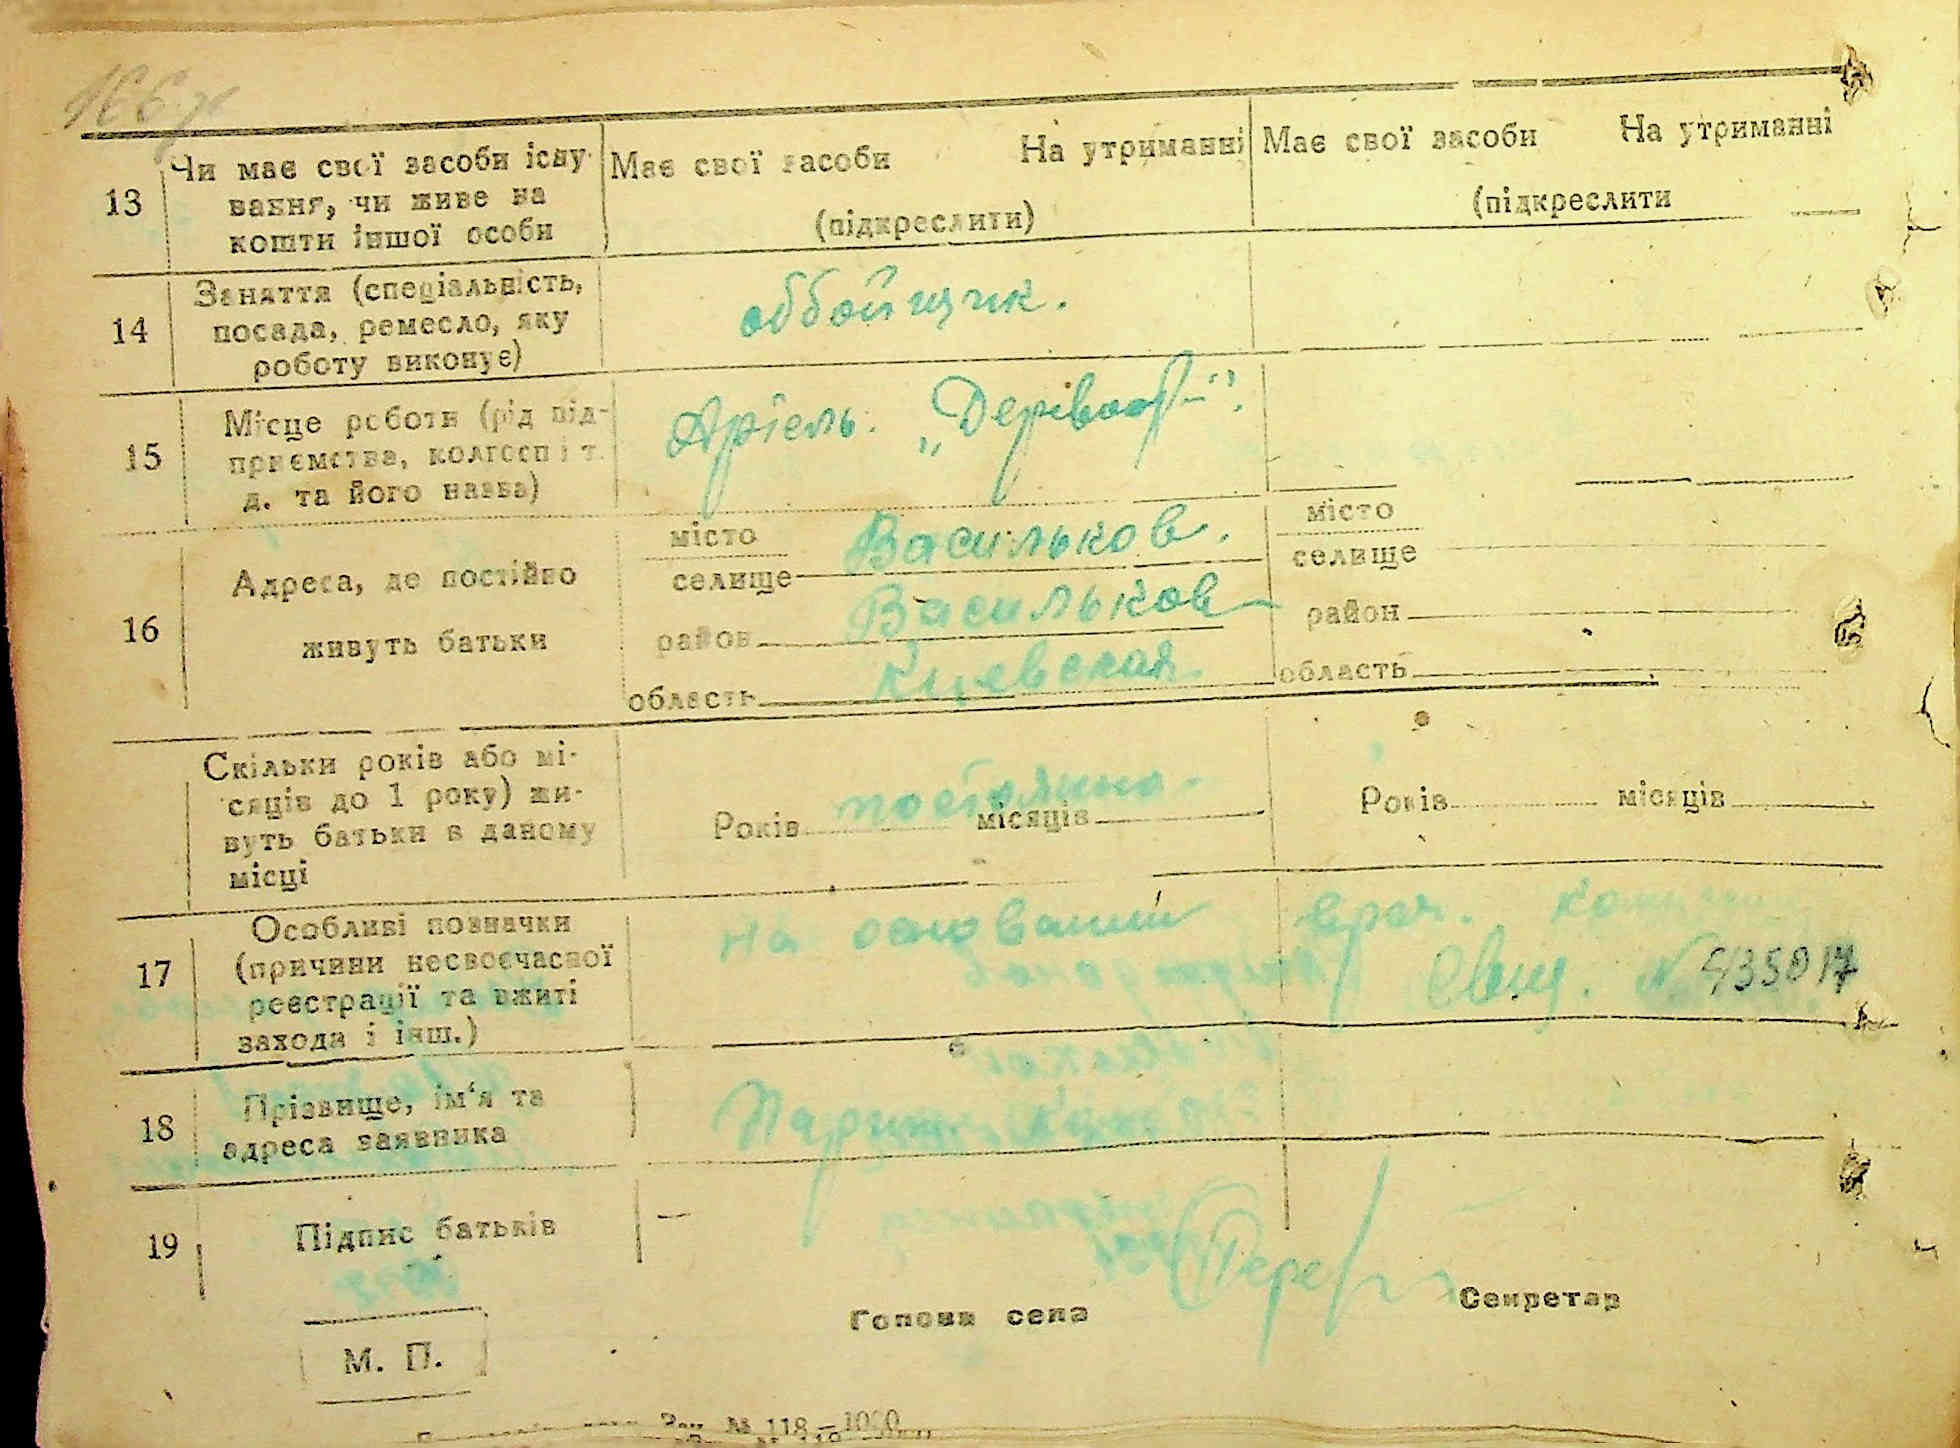 13
Чи має свої засоби існу-
вання, чи живе на
кошти іншої особи
Має свої засоби На утриманні
(підкреслити)
Має свої засоби На утриманні
(підкреслити
14
Заняття (спеціальність,
посада, ремесло, яку
роботу виконує)
оббойщик.
15
Місце роботи (рід під-
приємства, колгосп і т.
д. та його назва)
Артель.
16
Адреса, де постійно
живуть батьки
місто
селище
Васильков.
район
Васильков
область
Киевская.
місто
селище
район
область
Скільки років або мі-
сяців до 1 року) жи-
вуть батьки в даному
місці
Років постоянно. місяців
Років місяців
17
Особливі позначки
(причини несвоєчасної
реєстрації та вжиті
захода і інш.)
на основании врач.
Свид. № 435017
18
Прізвище, ім'я та
адреса заявника
19
Підпис батьків
—
Голова села
Секретар
М. П.
Зак. № 118—1000